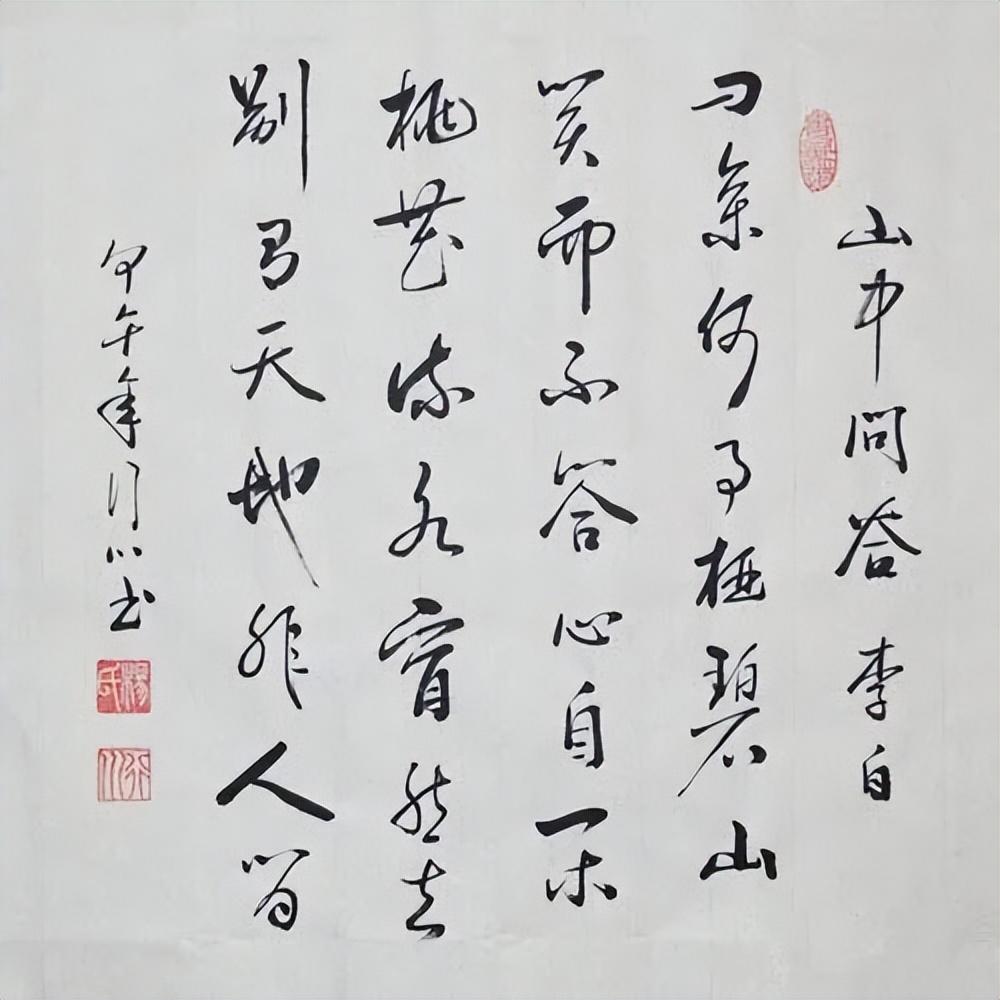 山中問答 李白
問余何事栖碧山
笑而不答心自閑
桃花流水窅然去
别有天地非人間
甲午年行川书
楊氏
行川